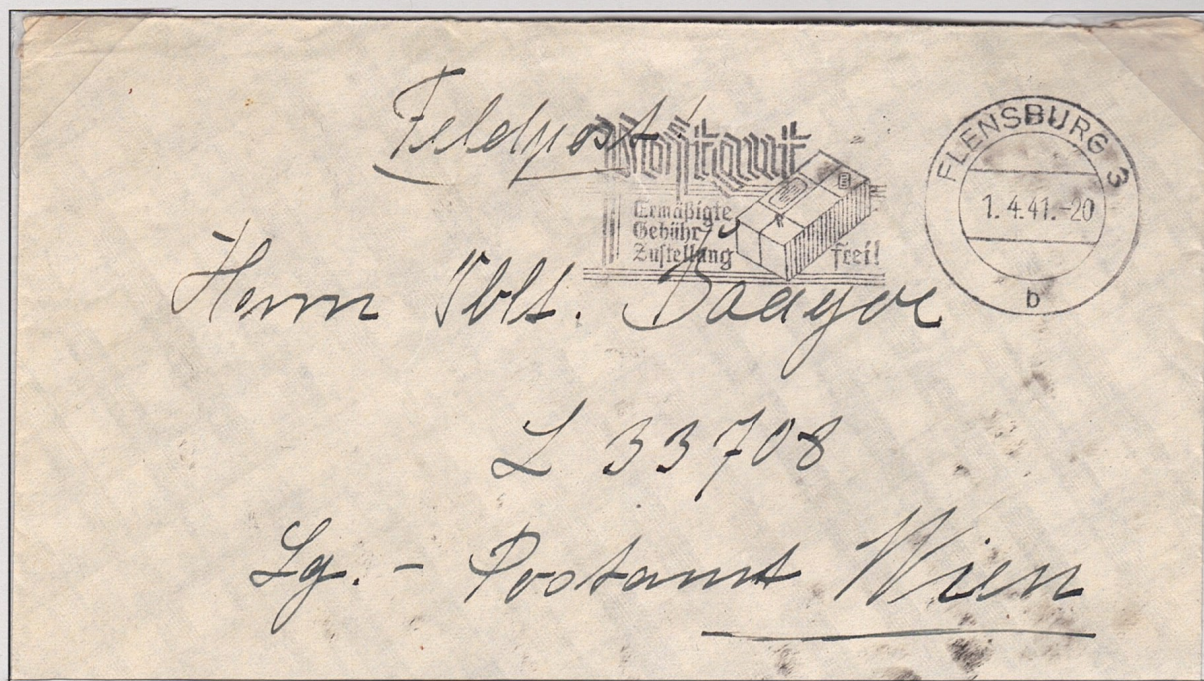 Feldpost!
Postgut
Ermäßigte
Gebühr
Zustellung frei!
FLENSBURG 3
1.4.41.-20
b
Herrn Oblt. Baagoe
L 33708
Lg. - Postamt Wien